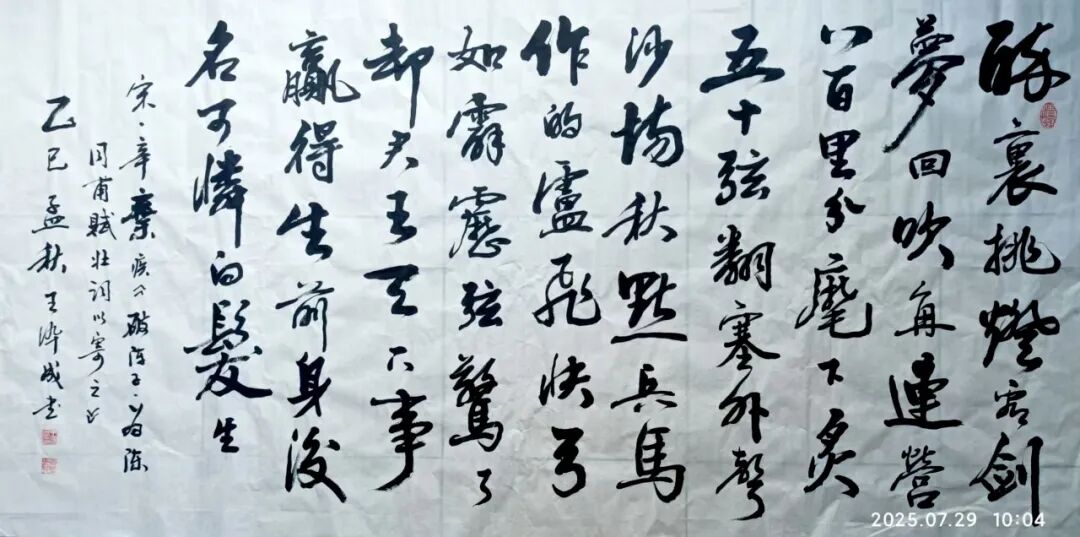 醉裏挑燈看劍
夢回吹角連營
八百里分麾下炙
五十弦翻塞外聲
沙場秋點兵馬
作的盧飛快弓
如霹靂弦驚了
却君王天下事
贏得生前身後
名可憐白髮生
宋·辛棄疾《破陣子·為陳
同甫賦壯詞以寄之》
乙巳孟秋 王 成书
2025.07.29 10:04